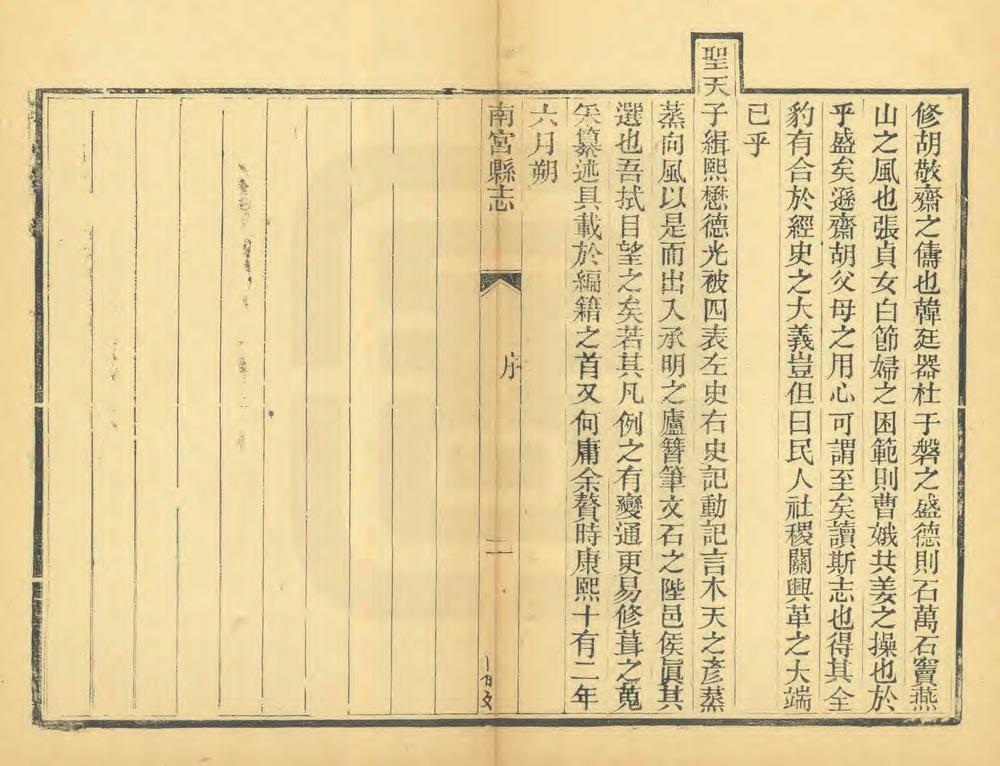 修胡敬齋之儔也韓廷器杜于磐之盛德則石萬石竇燕
山之風也張貞女白節婦之困範則曹娥共姜之操也於
乎盛矣遜齋胡父母之用心可謂至矣讀斯志也得其全
豹有合於經史之大義豈但曰民人社稷關興革之大端
已乎
聖天子緝熙懋德光被四表左史右史記動記言木天之彥蒸
蒸向風以是而出入承明之廬簪筆文石之陛邑侯眞其
選也吾拭目望之矣若其凡例之有變通更易修葺之蒐
纂述具載於編籍之首又何庸余贅時康熙十有二年
六月朔
南宮縣志
序
二